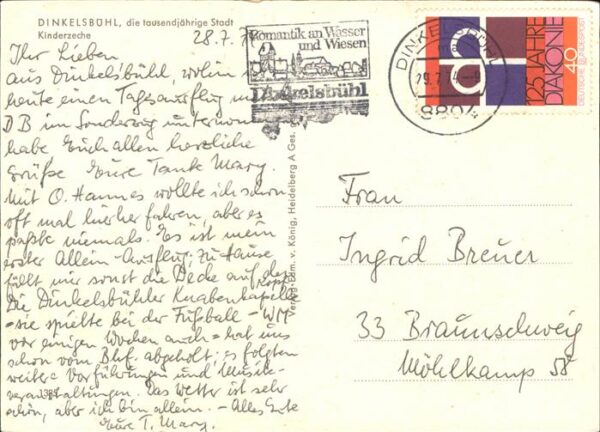 DINKELSBÜHL, die tausendjährige Stadt
Kinderzeche
28.7.7
Ihr Lieben
aus Dinkelsbühl, wohin
heute einen Tagesausflug
D B im Sonderzug unternom
habe Euch allen herzliche
Grüße Eure Tante Mary.
Mit O. Hannes wollte ich schon
oft mal hierher fahren, aber es
paßte niemals. Es ist mein
erster Allein-Ausflug; zu Hause
fällt mir sonst die Decke auf den Kopf
Die Dinkelsbühler Knabenkapelle
- sie spielte bei der Fußball-WM
vor einigen Wochen auch - hat uns
schon vom Bhf. abgeholt; es folgten
weitere Vorführungen und Musik-
veranstaltungen. Das Wetter ist sehr
schön, aber ich bin allein. - Alles Gute
Eure T. Mary.
Verlag v. König, Heidelberg A Ges.
Romantik an Wasser
und Wiesen
Dinkelsbühl
DINKELSBÜHL
29.7.74
8804
125 JAHRE
DIAKONIE
40
DEUTSCHE BUNDESPOST
Frau
Ingrid Breuer
33 Braunschweig
Möhlkamp 58